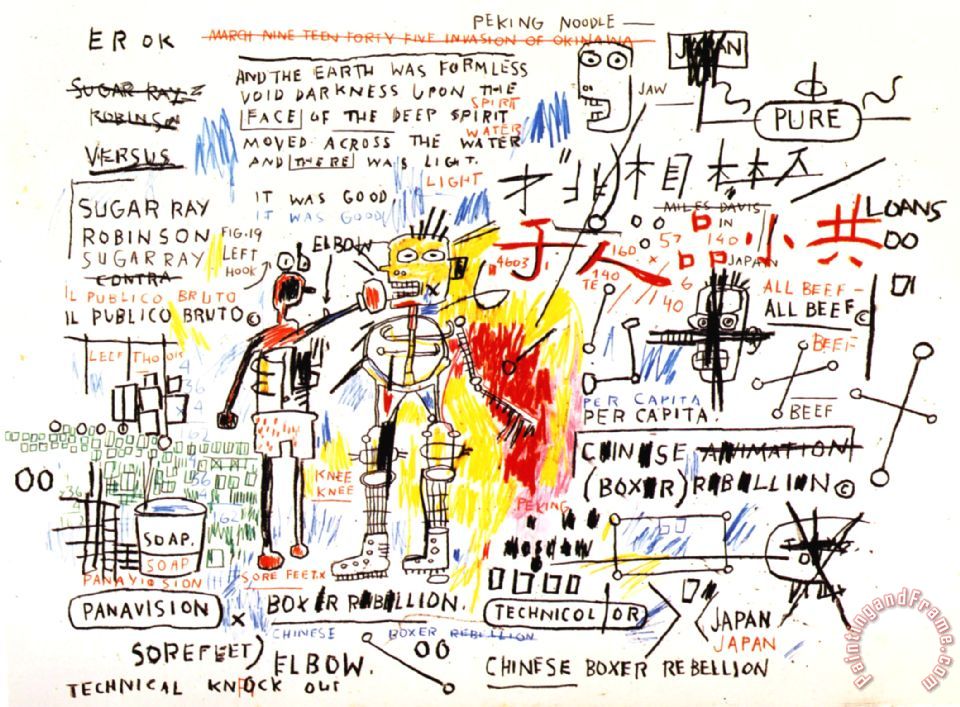 PEKING NOODLE
EROK
MARCH NINE TEEN FORTY FIVE INVASION OF OKINAWA
JAPAN
SUGAR RAY
ROBINSN
VERSUS
AND THE EARTH WAS FORMLESS
VOID DARKNESS UPON THE
SPIRIT
FACE OF THE DEEP SPIRIT
WATER
MOVED ACROSS THE WATER
AND THERE WAS LIGHT.
LIGHT
JAW
PURE
IT WAS GOOD
IT WAS GOOD
SUGAR RAY
ROBINSON
SUGARRAY
CONTRA
IL PUBLICO BRUTO
IL PUBLICO BRUTO©
FIG.19
LEFT
HOOK
ELBOW
MILES DAVIS
IN
JAPAN
子人品小共
LOANS
4603
160
57
140
140
TE
×
6
140
ALL BEEF-
ALL BEEF©
BEEF
BEEF
PER CAPITA
PER CAPITA.
36
4
62
36
4
62
36
KNEE
KNEE
CHINESE ANIMATION
(BOXER) REBELLION©
PEKING
MOSCOW
SOAP.
SOAP
PANAVISION
SORE FEET.X
PANAVISION
X
BOXER REBELLION.
CHINESE BOXER REBELLION
TECHNICOLOR
JAPAN
JAPAN
SOREFEET)
ELBOW.
CHINESE BOXER REBELLION
TECHNICAL KNOCK OUT
PaintingandFrame.com